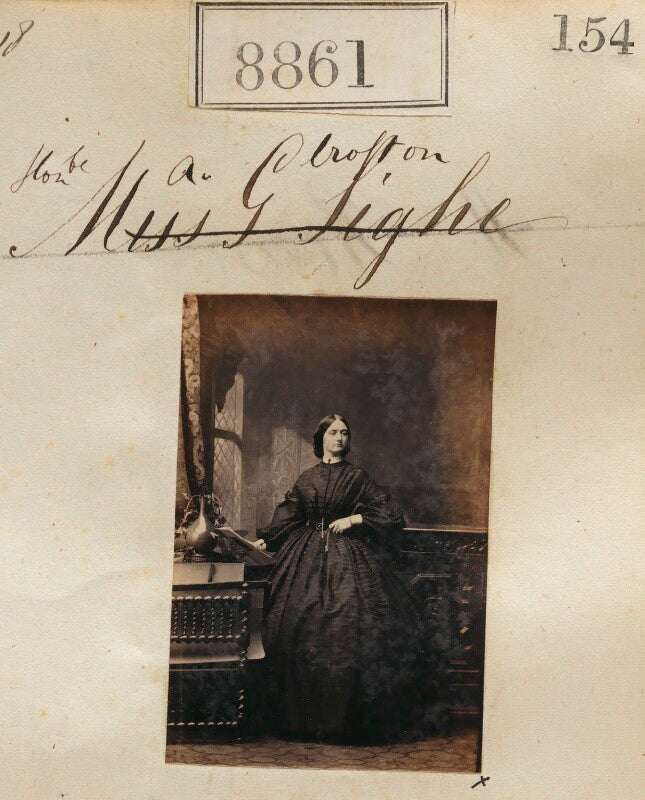 18
8861
154
Honble A. Crofton
Miss G Tighe
x